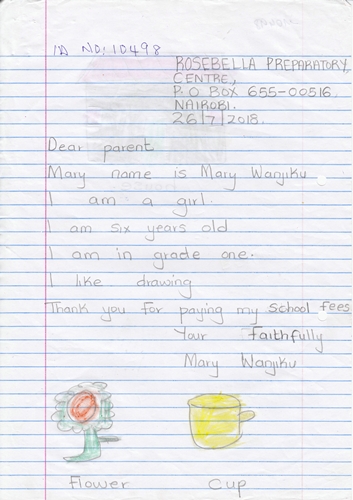 ID NO: 10498
ROSEBELLA PREPARATORY
CENTRE,
P.O BOX 655-00516,
NAIROBI.
26/7/2018.
Dear parent
Mary name is Mary Wanjiku
I am a girl.
I am six years old
I am in grade one.
I like drawing
Thank you for paying my school fees
Your Faithfully
Mary Wanjiku
Flower Cup